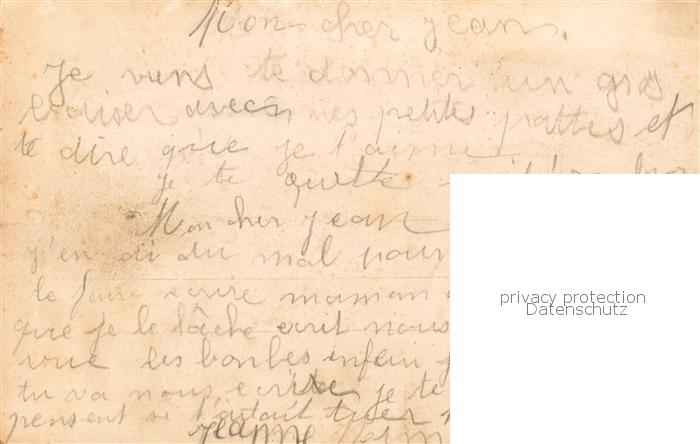 Mon cher jean.
Je viens te donner un gros
baiser avec mes petites pattes et
te dire que je t'aime
je te quitte
Mon cher jean
j'en ai du mal pour
le faire ecrire maman
que je le lâche ecrit nous
vue les bonbes enfein
tu va nous ecrire je te
pensent si t'autait tuer
jeanne
privacy protection
Datenschutz